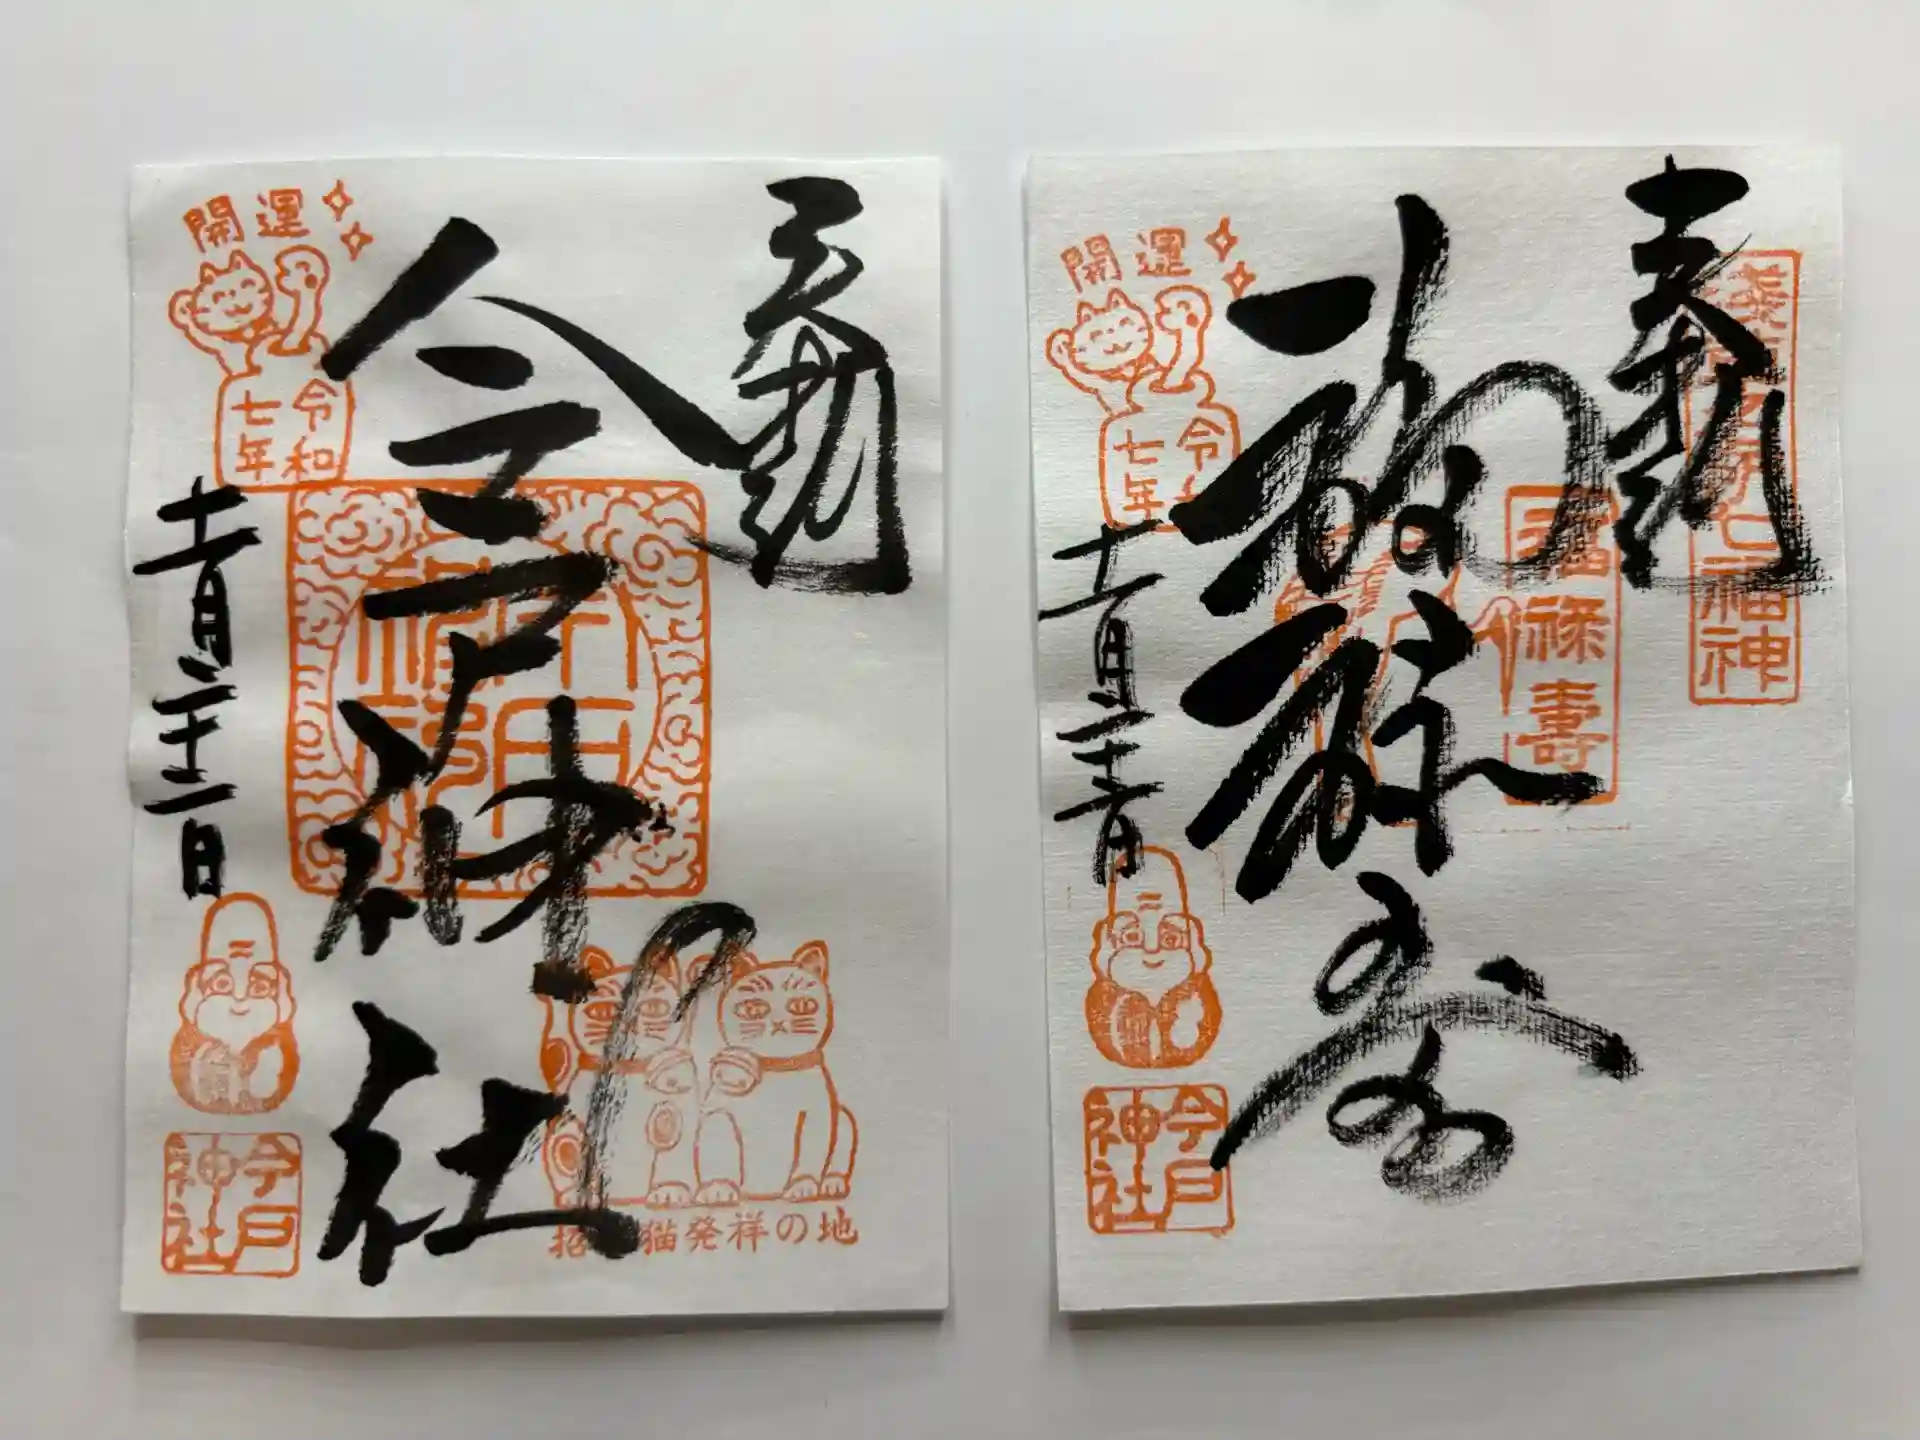 奉拝
今戸神社
十一月二十二日
開運
令和
七年
今戸
神社
招き猫発祥の地
奉拝
浅草名所七福神
福禄寿
福禄壽
十一月二十二日
開運
令和
七年
今戸
神社